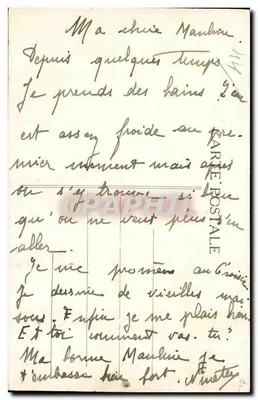 Ma chère
Depuis quelques temps
Je prends des bains. L'eau
est assez froide au pre-
mier moment mais après
on s'y trouve si bien
qu'on ne veut plus s'en
aller.
Je me promène au Croisic
Je dessine de vieilles mai-
sons. Enfin je me plais bien
Et toi comment vas-tu?
Ma bonne je
t'embrasse bien fort.
CARTE POSTALE